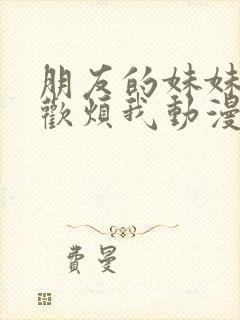 朋友的妹妹
歡煩我動漫
費曼